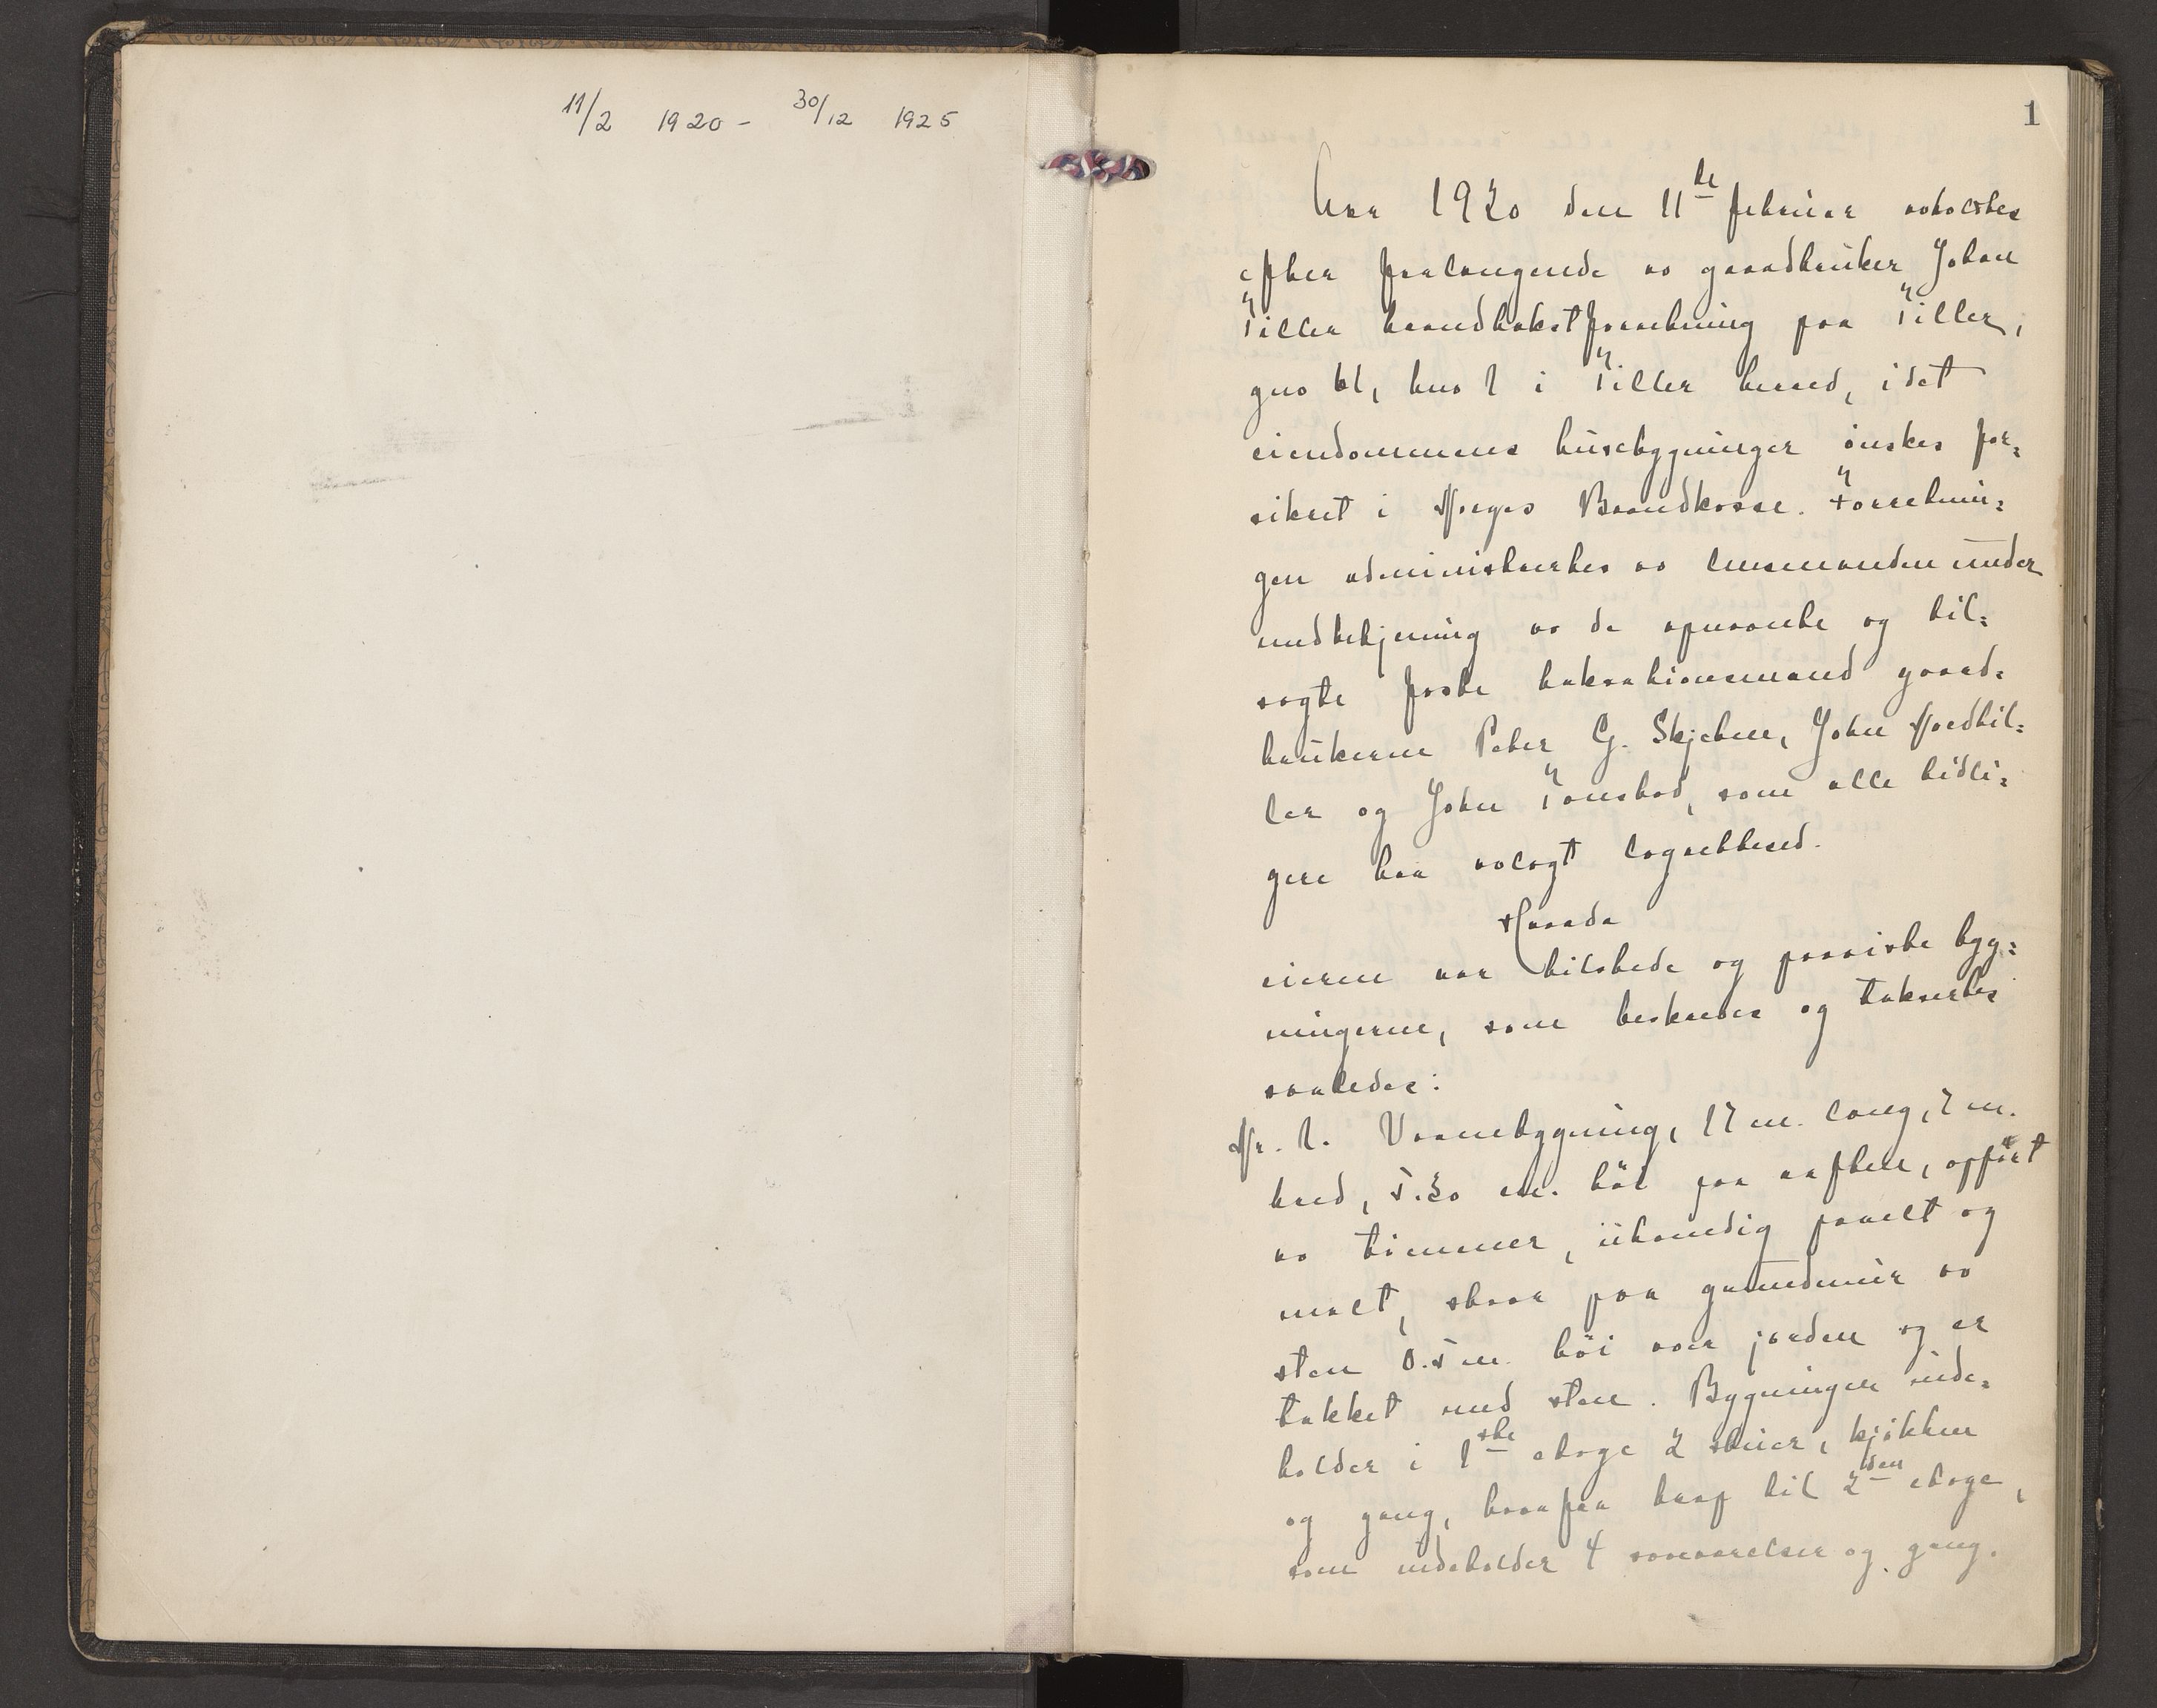 11/2 1920 - 30/12 1925
1
Aar 1920 den 11te februar avholdtes
efter forlangende av gaardbruker Johan
Tiller brandtakstforretning paa Tiller,
gno 61, bno 1 i Tiller herred, idet
eiendommens husebygninger ønskes for=
sikret i Norges Brandkasse. Forretnin=
gen administrertes av lensmanden under
medbetjening av de opnævnte og til=
sagte faste takstationsmænd gaard=
brukerne Peter G. Skjetne, John Nordtil=
ler og John Tonstad, som alle tidli=
gere har avlagt lagrettesed.
straada
eieren var tilstede og paaviste byg=
ningerne, som beskredes og taksertes
saaledes:
Nr. 1. Vaanebygning, 17 m. lang, 7 m.
bred, 5.20 m. høi paa raften, opført
av timmer, utvendig panelt og
malt, staar paa grundmur av
sten 0.5 m. høi over jorden og er
tækket med sten. Bygningen inde=
holder i 1ste etage 2 stuer, kjøkken
og gang, hvorfra trap til 2den etage,
som indeholder 4 soveværelser og gang.